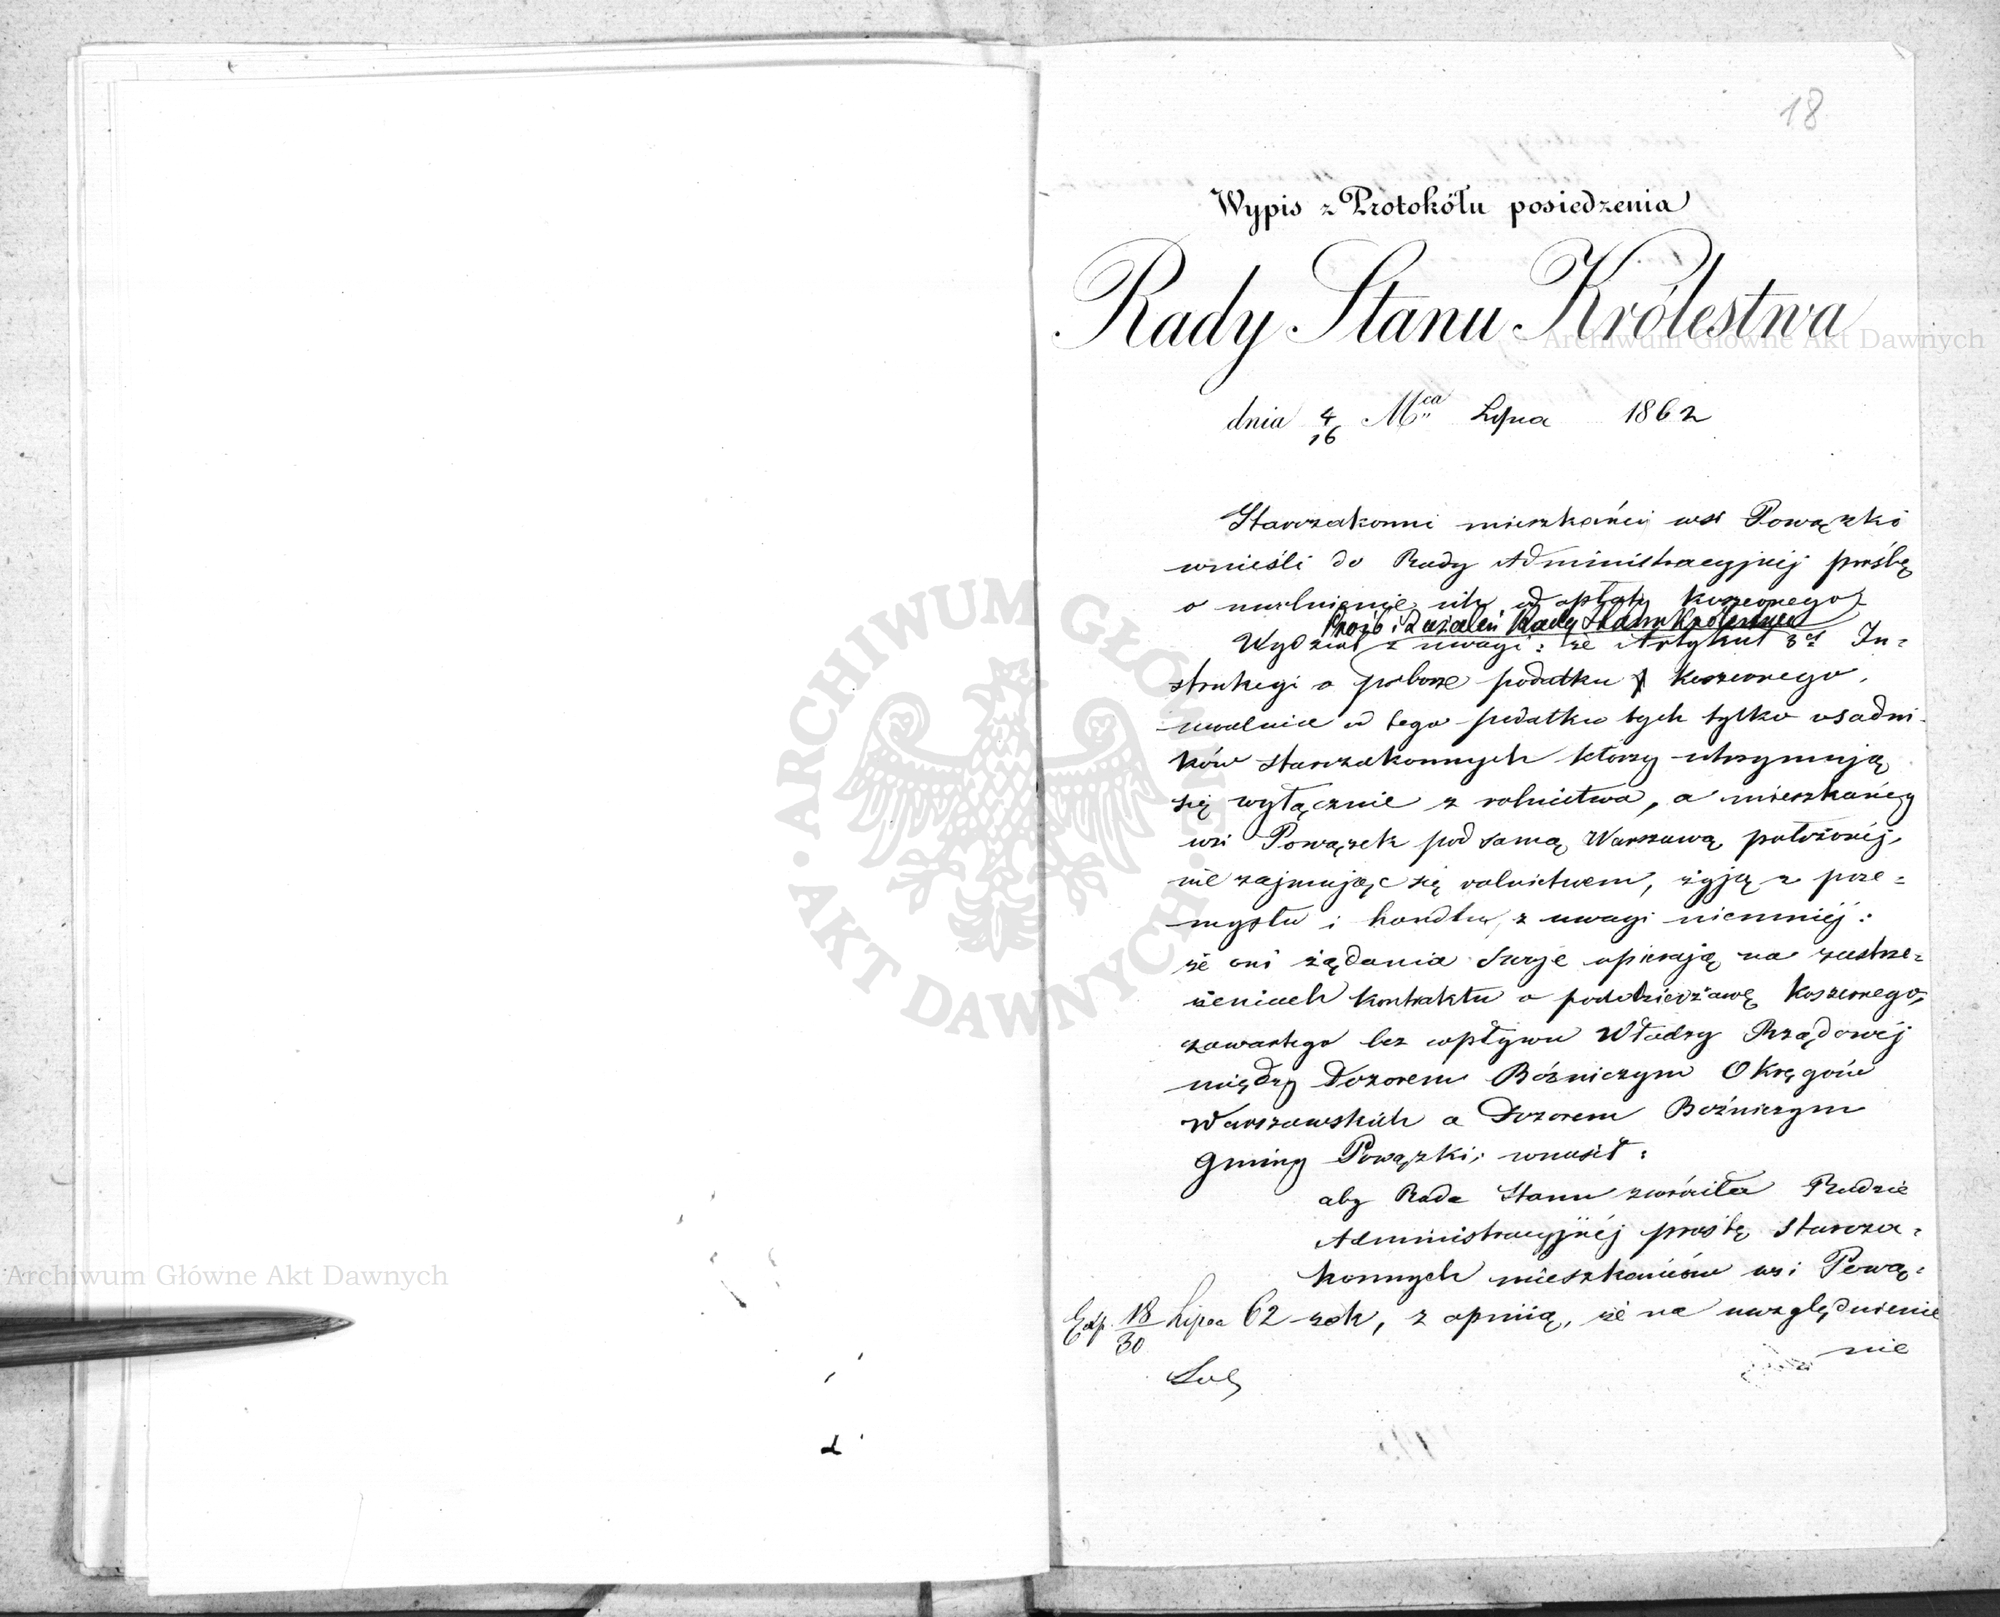 18
Wypis z Protokółu posiedzenia
Rady Stanu Królestwa
dnia 4/16 Mca Lipca 1862
Starozakonni mieszkańcy wsi Powązki
wnieśli do Rady Administracyjnéj prośbę
o uwolnienie ich od opłaty koszernego
Próśb i Zażaleń Rady Stanu Królestwa
Wydział z uwagi: że Artykuł 3ci In-
strukcyi o poborze podatku koszernego,
uwalnia od tego podatku tych tylko osadni-
ków starozakonnych którzy utrzymują
się wyłącznie z rolnictwa, a mieszkańcy
wsi Powązek pod samą Warszawą położonéj,
nie zajmując się rolnictwem, żyją z prze-
mysłu i handlu, z uwagi niemniéj:
że oni żądania swoje opierają na zastrze-
żeniach kontraktu o poddzierżawę koszernego,
zawartego bez wpływu Władzy Rządowéj
między Dozorem Bóżniczym Okręgów
Warszawskich a Dozorem Bóżniczym
Gminy Powązki; wnosił:
aby Rada Stanu zwróciła Radzie
Administracyjnéj prośbę staroza-
konnych mieszkańców wsi Pową-
zek, z opinią, że na uwzględnienie
nie
Exp. 18/30 Lipca 62
Archiwum Główne Akt Dawnych
Archiwum Główne Akt Dawnych
ARCHIWUM GŁÓWNE AKT DAWNYCH